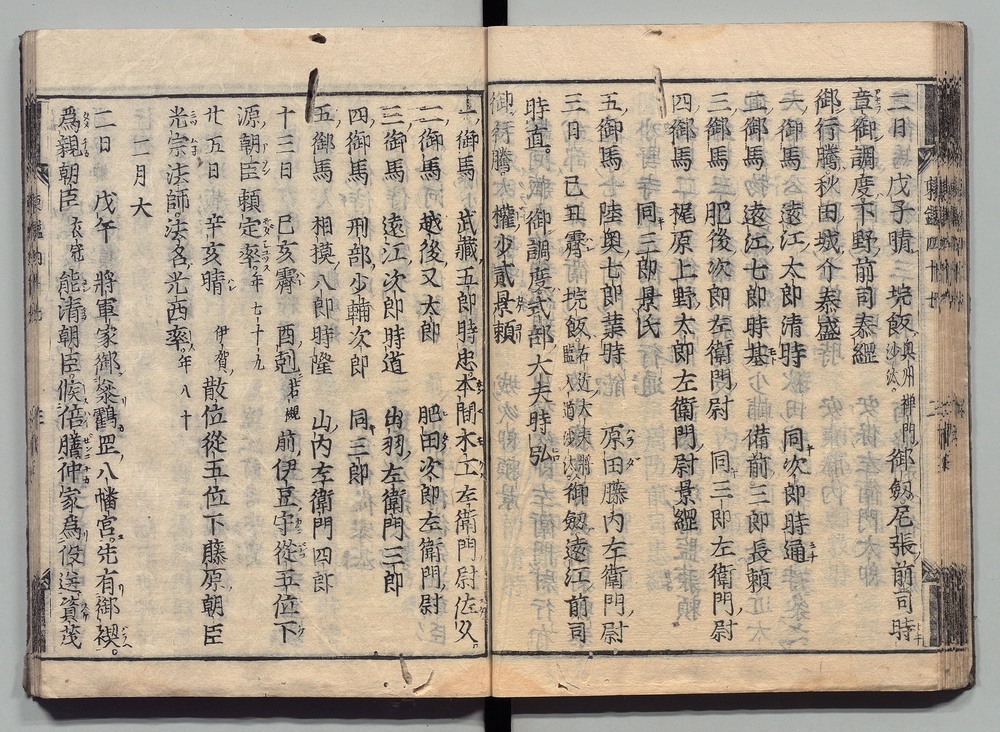 二日　戊子晴　垸飯　奥州禅門　沙汰　御劔尾張前司時
章御調度下野前司泰經
御行騰秋田城介泰盛
一御馬遠江太郎清時　同次郎時通
二御馬遠江七郎時基　備前三郎長頼
三御馬三肥後次郎左衛門尉　同三郎左衛門尉
四御馬梶原上野太郎左衛門尉景經
同三郎景氏
五御馬陸奥七郎業時　原田藤内左衛門尉
三日　己丑霽　垸飯　御劔遠江前司
時直　御調度式部大夫時弘
御行騰　權少貳景頼
一御馬　武藏五郎時忠　本間木工左衛門尉佐久
二御馬　越後又太郎　肥田次郎左衛門尉
三御馬　遠江次郎時道　出羽左衛門三郎
四御馬　刑部少輔次郎　同三郎
五御馬　相摸八郎時隆　山内左衛門四郎
十三日　己亥霽　酉剋　前伊豆守從五位下
源朝臣頼定卒　年七十九
廿五日　辛亥晴　伊賀　散位從五位下藤原朝臣
光宗法師　法名光西卒　年八十
二月大
二日　戊午　將軍家御參鶴罡八幡宮先有御禊
爲親朝臣　衣冠　能清朝臣候倍膳仲家爲役送資茂